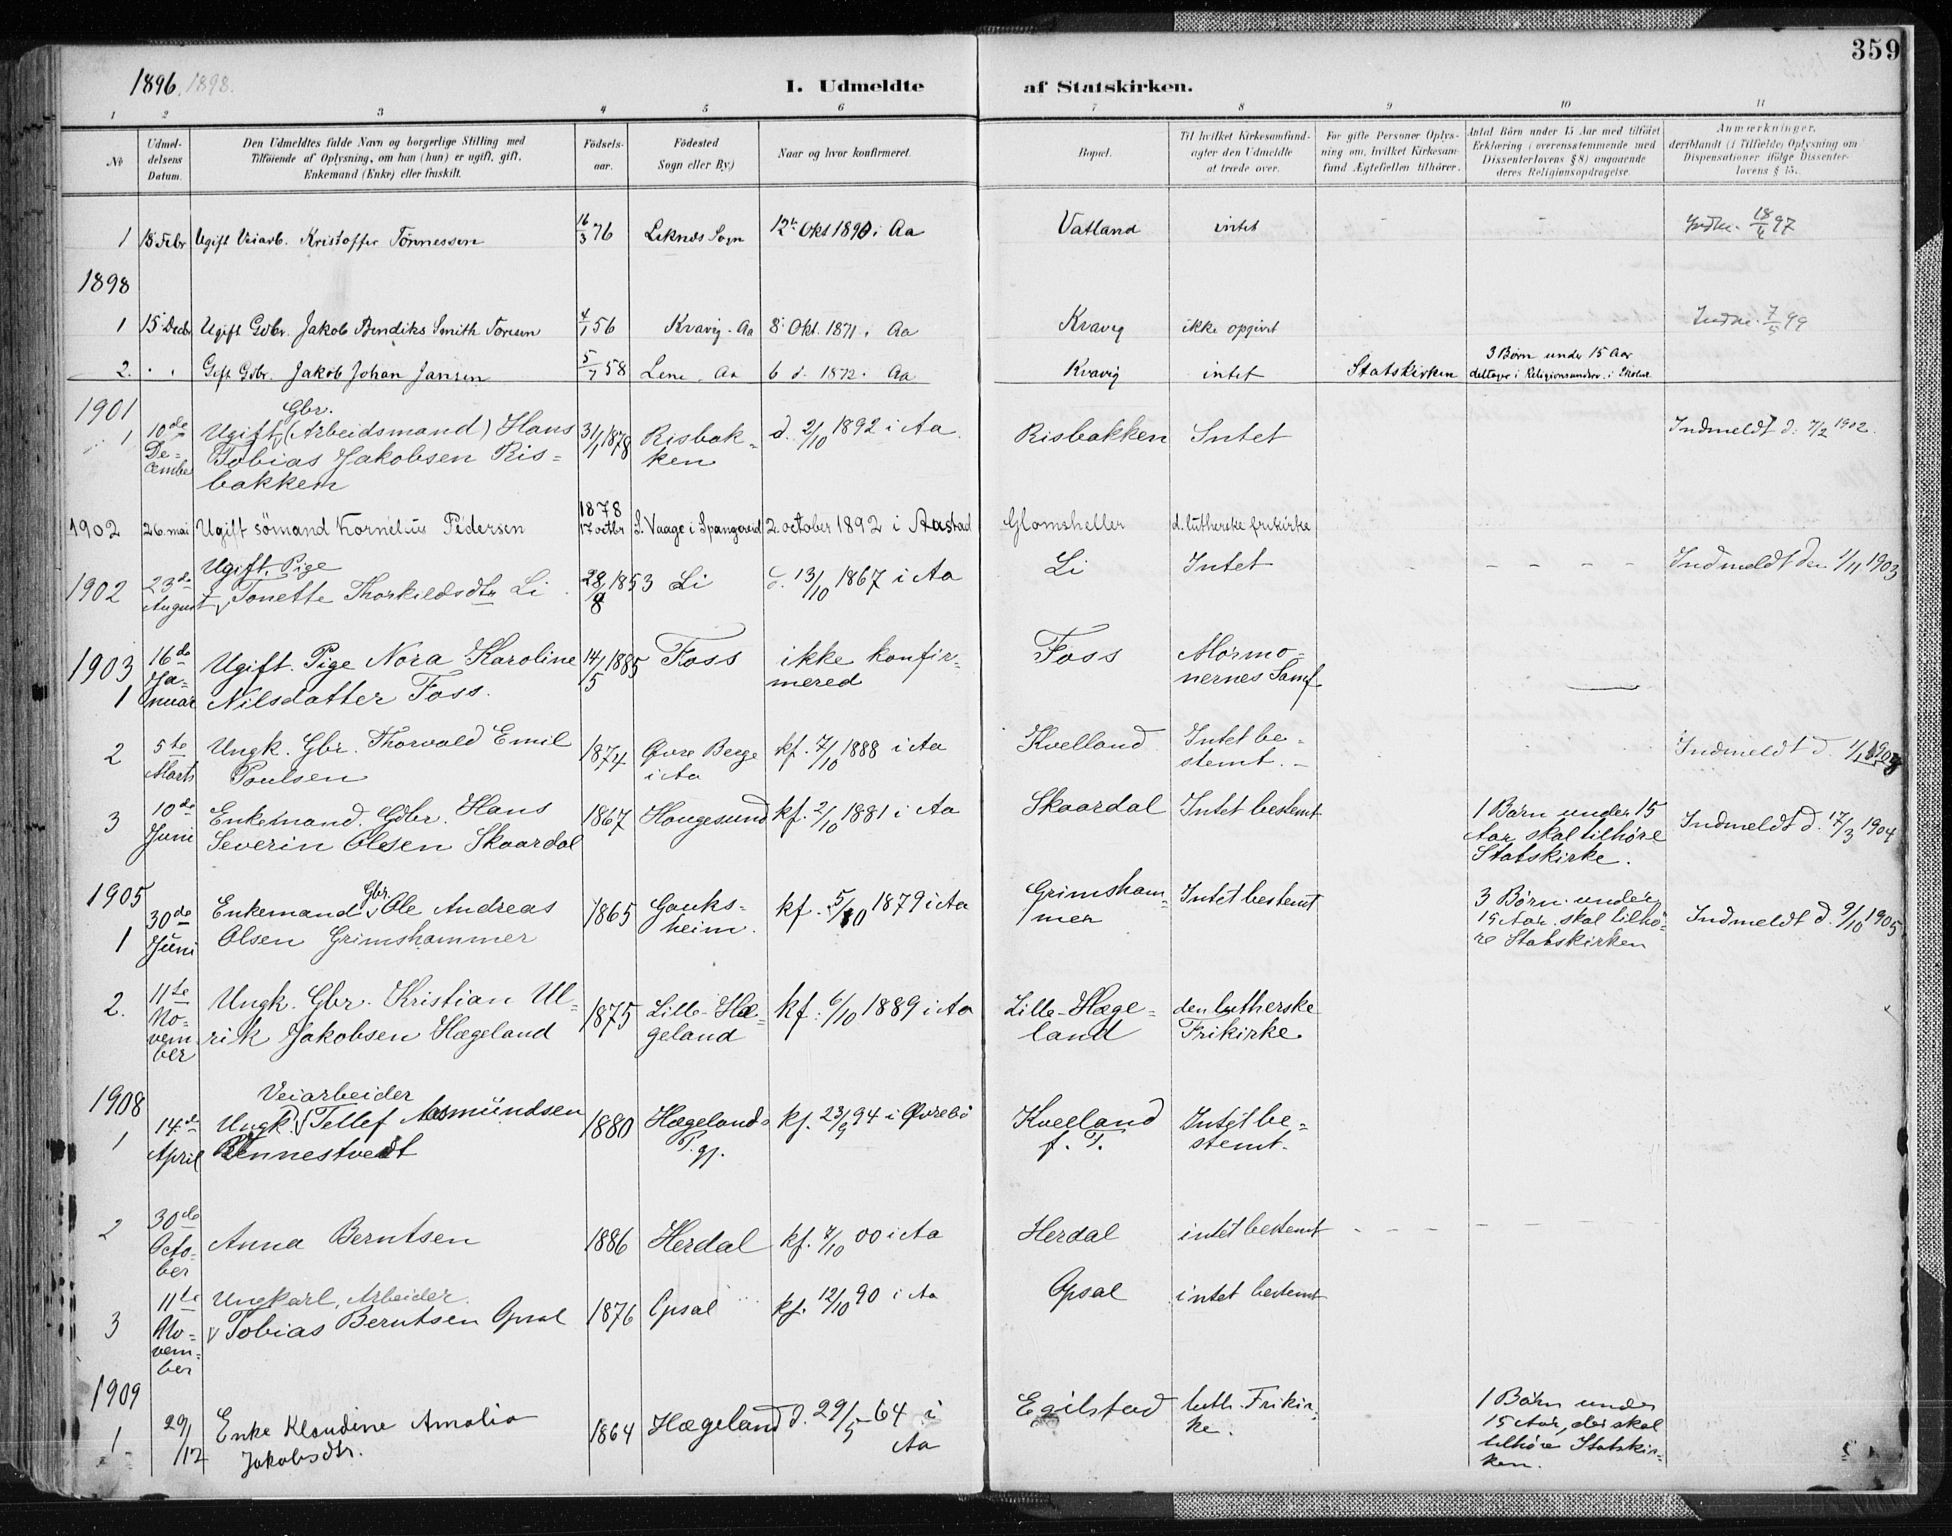 359
1896. 1898.
I. Udmeldte af Statskirken.
1 2 3 4 5 6 7 8 9 10 11
No
Udmel-
delsens
Datum.
Den Udmeldtes fulde Navn og borgerlige Stilling med
Tilføiende af Oplysning, om han (hun) er ugift, gift,
Enkemand (Enke) eller fraskilt.
Fødsels-
aar.
Fødested
Sogn eller By.)
Naar og hvor konfirmeret.
Bopæl.
Til hvilket Kirkesamfund-
agter den Udmeldte
at træde over.
For gifte Personer Oplys-
ning om, hvilket Kirkesam-
fund Ægtefællen tilhører.
Antal Børn under 15 Aar med tilføiet
Erklæring i overensstemmende med
Dissenterlovens § 8) angaaende
deres Religionsopdragelse.
Anmærkninger,
deriblandt (i Tilfælde) Oplysning om
Dispensationer ifølge Dissenter-
lovens § 15.
1 15 Febr Ugift Veiarb. Kristoffer Tönnessen 16/3 76 Leknes Sogn 12te Okt 1890 i Aa Vatland intet Indm. 18/4 97
1898
1 15 Decbr Ugift Gdbr. Jakob Bendiks Smith Toresen 4/1 56 Kvavig. Aa 8 Okt. 1871. Aa Kvavig ikke opgivet Indm. 7/5 99
2. " " Gift Gdbr. Jakob Johan Jansen 5/7 58 Lene. Aa 6 d. 1872. Aa Kvavig intet Statskirken 3 Børn under 15 Aar
deltager i Religionsunderv. i Skolen
1901
1 10de De=cember Ugift Gbr. (Arbeidsmand) Hans
Tobias Jakobsen Ris=
bakken
31/1 1878
Risbak=
ken
d. 2/10 1892 i Aa. Risbakken Intet Indmeldt d. 7/2 1902.
1902 26. mai Ugift sömand Kornelius Pedersen 1878 17 octbr S. Vaage i Spangereid 2. october 1892 i Aastad Glomsheller d. lutherske frikirke
1902 23de August Ugift. Pige
Tonette Thorkildsdtr Li. 28/8 1853 Li d. 13/10 1867 i Aa Li Intet Indmeldt den 1/11 1903
1903
1 16de Ja=nuar Ugift. Pige Nora Karoline
Nilsdatter Foss.
14/5 1885 Foss ikke konfir=
mered
Foss Mormo=
nernes Samf
2 5te Marts Ungk. Gbr. Thorvald Emil
Poulsen
1874 Øvre Berge
i Aa
kf. 7/10 1888 i Aa Kvelland Intet be=
stemt.
Indmeldt d.
3 10de Juni Enkemand. Gdbr. Hans
Severin Olesen Skaardal
1867 Haugesund kf. 2/10 1881 i Aa Skaardal Intet bestemt 1 Barn under 15
Aar skal tilhøre
Statskirke.
Indmeldt d. 17/3 1904
1905
1 30de Juni Enkemand Gbr. Ole Andreas
Olsen Grimshammer
1865 Gauks=
heim.
kf. 5/10 1879 i Aa Grimsham=
mer
Intet bestemt 3 Børn under
15 Aar. skal tilhø=
re Statskirken
Indmeldt d. 9/10 1905
2. 11te No=vem=ber Ungk. Gbr. Kristian Ul=
rik Jakobsen Hægeland
1875 Lille-Hæ=
geland
kf. 6/10 1889 i Aa Lille-Hæge=
land
den lutherske
Frikirke.
1908
1 14de April Veiarbeider
Ungk. Tellef Aasmundsen
Rennestvedt
1880 Hægelands
Pgj.
kf. 23/9 94 i Øvrebö Kvelland
f. T.
Intet be=
stemt.
2 30de Octo=ber Anna Berntsen 1886 Herdal kf. 7/10 00 i Aa Herdal intet bestemt
3 11te No=vem=ber Ungkarl, Arbeider.
Tobias Berntsen Opsal 1876 Opsal kf. 12/10 90 i Aa Opsal intet bestemt
1909
1 29/12 Enke Klaudine Amalia
Jakobsdtr.
1864 Hægeland d. 29/5 64 i
Aa
Egilstad luth. Frikir=
ke.
1 Barn under
15 Aar, der skal
tilhøre Statskir=
ken.